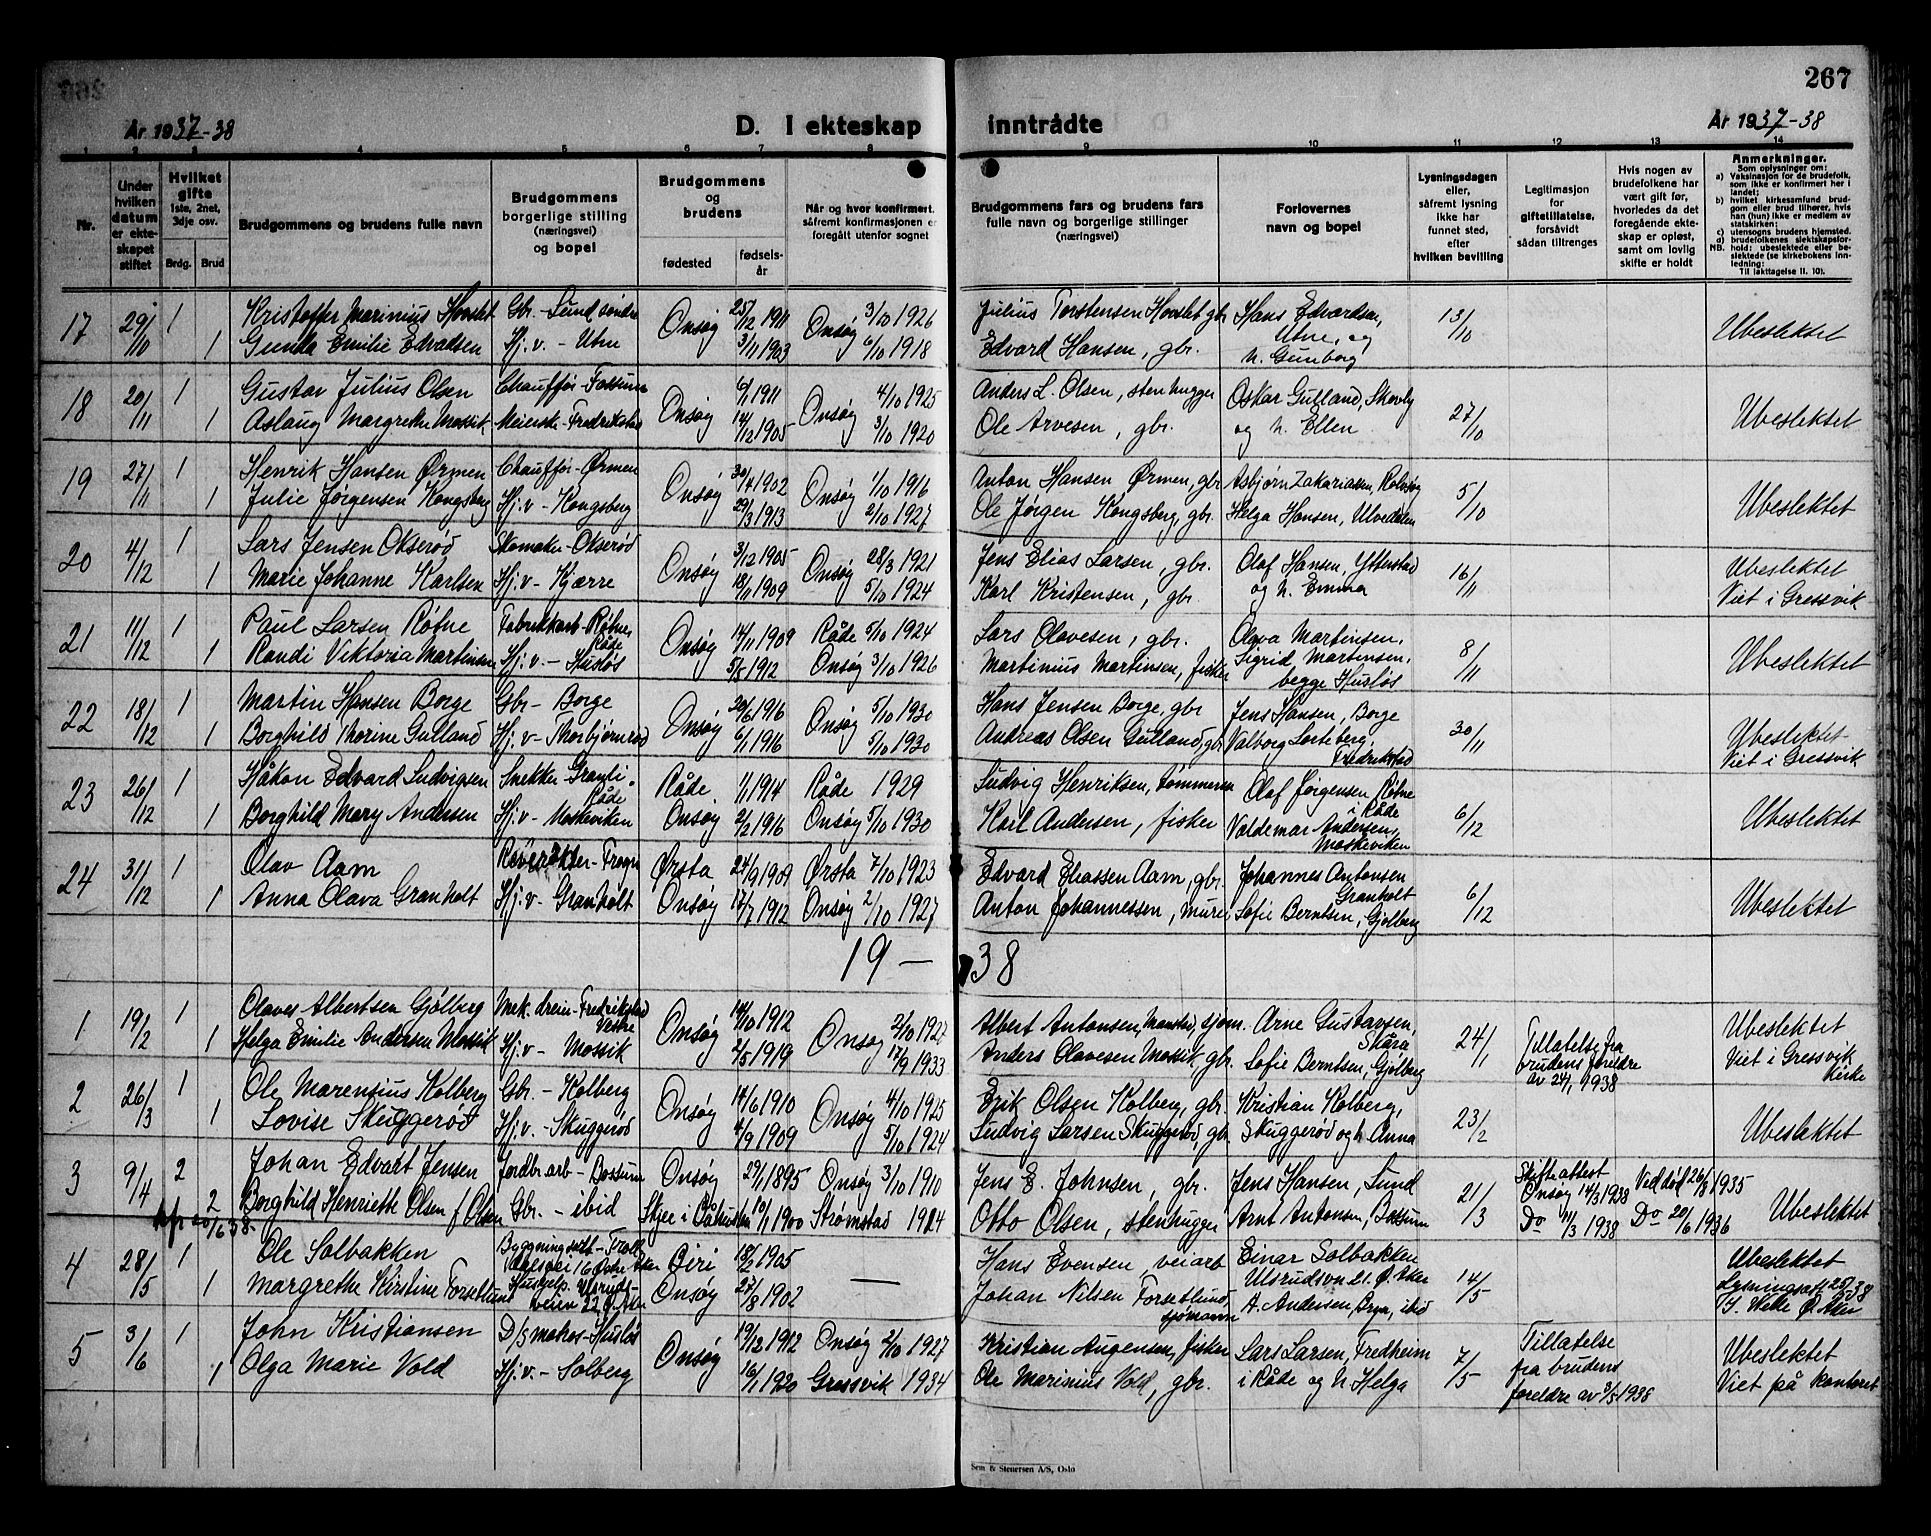 267
År 1937-38
D. I ekteskap inntrådte
År 1937-38
1 2 3 4 5 6 7 8 9 10 11 12 13 14
Nr.
Under hvilken datum er ekteskapet stiftet
Hvilket gifte 1ste, 2net, 3dje osv.
Brdg. Brud
Brudgommens og brudens fulle navn
Brudgommens borgerlige stilling (næringsvei) og bopel
Brudgommens og brudens
fødested
fødselsår
Når og hvor konfirmert, såfremt konfirmasjonen er foregått utenfor sognet
Brudgommens fars og brudens fars fulle navn og borgerlige stillinger (næringsvei)
Forlovernes navn og bopel
Lysningsdagen eller, såfremt lysning ikke har funnet sted, efter hvilken bevilling
Legitimasjon for giftetillatelse, forsåvidt sådan tiltrenges
Hvis nogen av brudefolkene har vært gift før, hvorledes da det foregående ekteskap er opløst, samt om lovlig skifte er holdt
Anmerkninger.
Som oplysninger om:
a) Vaksinasjon for de brudefolk, som ikke er konfirmert her i landet;
b) hvilket kirkesamfund brudgom eller brud tilhører, hvis han (hun) ikke er medlem av statskirken;
c) utensogns brudens hjemsted.
d) brudefolkenes slektskapsforhold: ubeslektede eller beslektede (se kirkebokens innledning:
NB. Til iakttagelse II. 10).
17 29/10 1 Kristoffer Marinius Hovslet Gbr. - Lund søndre Onsøy 25/12 1911 Onsøy 3/10 1926 Julius Torstensen Hovslet gbr Hans Edvardsen, 13/10 Ubeslektet
1 Gunda Emilie Edvadsen Hj.v. - Utne 3/11 1903 6/10 1918 Edvard Hansen, gbr. Utne, og h. Gunborg
18 20/11 1 Gustav Julius Olsen Chauffør - Fossum Onsøy 6/1 1911 Onsøy 4/10 1925 Anders L. Olsen, stenhugger Oskar Gulland, Skovly 27/10 Ubeslektet
1 Aslaug Margrethe Mossik Meierske - Fredrikstad 14/12 1905 3/10 1920 Ole Arvesen, gbr. og h. Ellen
19 27/11 1 Henrik Hansen Ørmen Chauffør - Ørmen Onsøy 30/4 1902 Onsøy 1/10 1916 Anton Hansen Ørmen, gbr Asbjørn Zakariassen, Rolvsøy 5/10 Ubeslektet
1 Julie Jørgensen Kongsberg Hj.v - Kongsberg 29/3 1913 2/10 1927 Ole Jørgen Kongsberg, gbr. Helga Hansen, Ulvedalen
20 4/12 1 Lars Jensen Okserød Skomaker - Okserød Onsøy 3/12 1905 Onsøy 28/3 1921 Jens Elias Larsen, gbr. Olaf Hansen, Ytterstad 16/11 Ubeslektet
1 Marie Johanne Karlsen Hj.v - Kjærre 18/11 1909 5/10 1924 Karl Kristensen, gbr. og h. Emma Viet i Gressvik
21 11/12 1 Paul Larsen Røtne Fabrikkarb - Røtne, Råde Onsøy 14/11 1909 Råde 5/10 1924 Lars Olavesen, gbr. Olava Martinsen, 8/11 Ubeslektet
1 Randi Viktoria Martinsen Hj.v. - Husløs 5/8 1912 Onsøy 3/10 1926 Martinius Martinsen, fisker Sigrid Martensen, begge Husløs
22 18/12 1 Martin Hansen Borge Gbr - Borge Onsøy 20/6 1916 Onsøy 5/10 1930 Hans Jensen Borge, gbr Jens Hansen, Borge 30/11 Ubeslektet
1 Borghild Thorine Gulland Hj.v - Thorbjørnrød 6/1 1916 5/10 1930 Andreas Olsen Gulland, gbr Valborg Lorteberg, Fredrikstad Viet i Gressvik
23 26/12 1 Håkon Edvard Ludvigsen Snekker Granli - Råde Råde 1/1 1914 Råde 1929 Ludvig Henriksen, tømmerm Olaf Jørgensen Røtne i Råde 6/12 Ubeslektet
1 Borghild Mary Andersen Hj.v - Moskeviken Onsøy 2/2 1916 Onsøy 5/10 1930 Karl Andersen, fisker Valdemar Andersen, Moskeviken
24 31/12 1 Olav Aam Røverøkter - Frogn Ørsta 24/9 1909 Ørsta 7/10 1923 Edvard Eliassen Aam, gbr. Johannes Antonsen Granholt 6/12 Ubeslektet
1 Anna Olava Granholt Hj.v - Granholt Onsøy 17/7 1912 Onsøy 2/10 1927 Anton Johannessen, murer Sofie Berntsen, Gjølberg
19 — 38
1 19/2 1 Olaves Albertsen Gjølberg Mek. dreier - Fredrikstad Vestre Onsøy 14/10 1912 Onsøy 2/10 1927 Albert Antonsen, Monstad, sjøm. Arne Gustavsen, Skåra 24/1 Tillatelse fra Ubeslektet
1 Helga Emilie Andersen Mossik Hj.v - Mossik 2/5 1919 17/9 1933 Anders Olavesen Mossik, gbr. Sofie Berntsen, Gjølberg brudens foreldre av 24/1 1938 Viet i Gressvik Kirke
2 26/3 1 Ole Marensius Kolberg Gbr. - Kolberg Onsøy 14/6 1910 Onsøy 4/10 1925 Erik Olsen Kolberg, gbr. Kristian Kolberg, 23/2 Ubeslektet
1 Lovise Skuggerød Hj.v. - Skuggerød 4/9 1909 5/10 1924 Ludvig Larsen Skuggerød, gbr Skuggerød og h. Anna
3 9/4 2 Johan Edvart Jensen Jordbr.arb - Bossum Onsøy 29/1 1895 Onsøy 3/10 1910 Jens E. Johnsen, gbr. Jens Hansen, Lund 21/3 Skifteattest Onsøy 14/3 1938 Ved død 26/8 1935 Ubeslektet
2 Borghild Henriette Olsen f. Olsen Gbr. - ibid Skjee i 10/1 1900 Strømstad 1914 Otto Olsen, stenhugger Arnt Antonsen, Bossum Do 11/3 1938 Do 20/6 1936
20/6 38.
4 28/5 1 Ole Solbakken Biri 18/2 1905 — Hans Evensen, veiarb Einar Solbakken 14/5 Ubeslektet
1 Margrethe Kirstine Forsetlund Onsøy 27/8 1902 Johan Nilsen Forsetlund, sjømann Ulsrudsvn 21. Ø. Aker A. Andersen, Bryn, ibid
5 3/6 1 John Kristiansen D/S maskos - Husløs Onsøy 19/12 1912 Onsøy 2/10 1927 Kristian Augensen, fisker Lars Larsen, Fredheim 7/5 Tillatelse Ubeslektet
1 Olga Marie Vold Hj.v. - Solberg 16/1 1920 Gressvik 1934 Ole Marinius Vold, gbr. i Råde og h. Helga fra brudens foreldre av 3/5 1938 Viet på kontoret
Sem & Stenersen A/S, Oslo